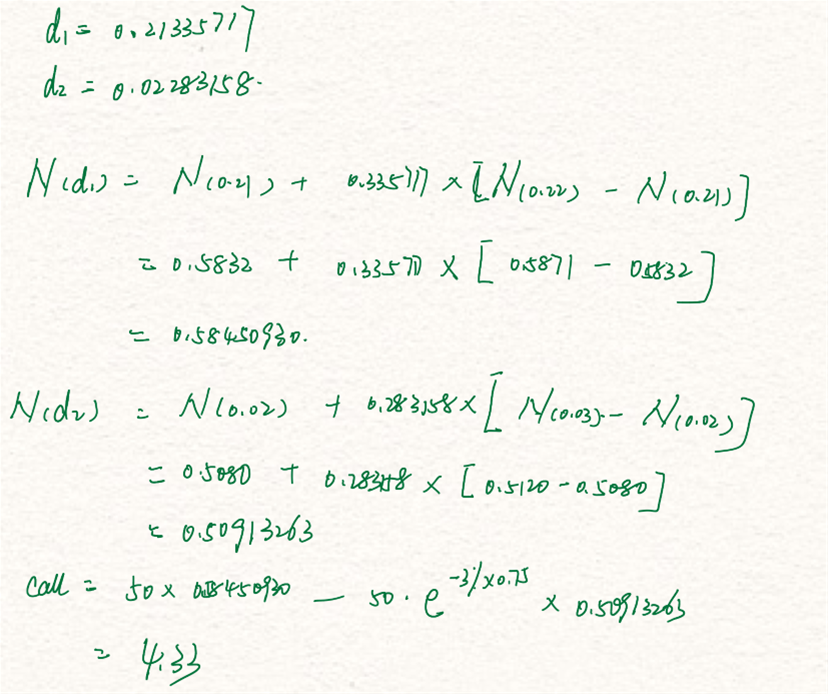 d₁ = 0.21335717
d₂ = 0.02283158.
N(d₁) = N(0.21) + 0.335717 × [N(0.22) - N(0.21)]
= 0.5832 + 0.33571 × [0.5871 - 0.5832]
= 0.58450930.
N(d₂) = N(0.02) + 0.283158 × [N(0.03) - N(0.02)]
= 0.5080 + 0.283158 × [0.5120 - 0.5080]
= 0.50913263
Call = 50 × 0.58450930 — 50 · e^-3%×0.75 × 0.50913263
= 4.33